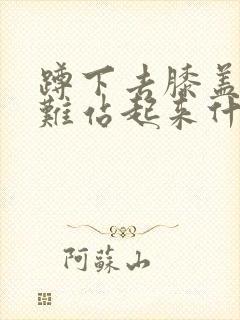 蹲下去膝盖
難佔起来什
阿蘇山